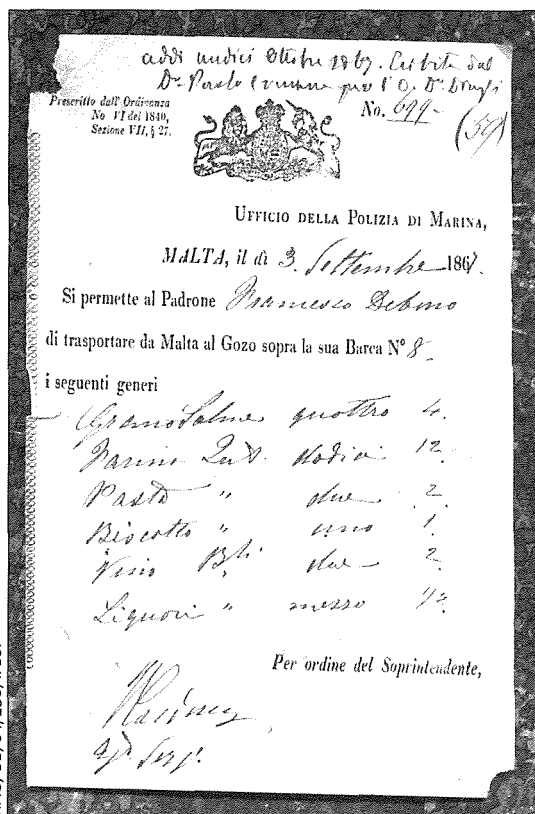 addi undici Ottobre 1867. Esibita dal
Dr. Pasto per l'O. Dr.
Prescritto dall' Ordinanza
No VI del 1840,
Sezione VII, § 27.
No. 699
(59)
UFFICIO DELLA POLIZIA DI MARINA,
MALTA, il dì 3 Settembre 1867.
Si permette al Padrone Francesco Debono
di trasportare da Malta al Gozo sopra la sua Barca N° 8
i seguenti generi
Grano Salme quattro 4.
Farina Qnt. dodici 12
Pasta " due 2
Biscotto " uno 1
Vino Bli. due 2
Liquori " mezzo 1/2
Per ordine del Soprintendente,
Sergt.